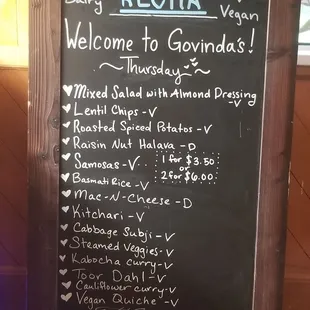 Dairy
ALOHA
Vegan
Welcome to Govinda's!
Thursday
Mixed Salad with Almond Dressing
-V
Lentil Chips -V
Roasted Spiced Potatos -V
Raisin Nut Halava -D
Samosas -V
1 for $3.50
or
2 for $6.00
Basmati Rice -V
Mac-N-Cheese -D
Kitchari -V
Cabbage Subji -V
Steamed Veggies -V
Kabocha curry -V
Toor Dahl -V
Cauliflower curry -V
Vegan Quiche -V